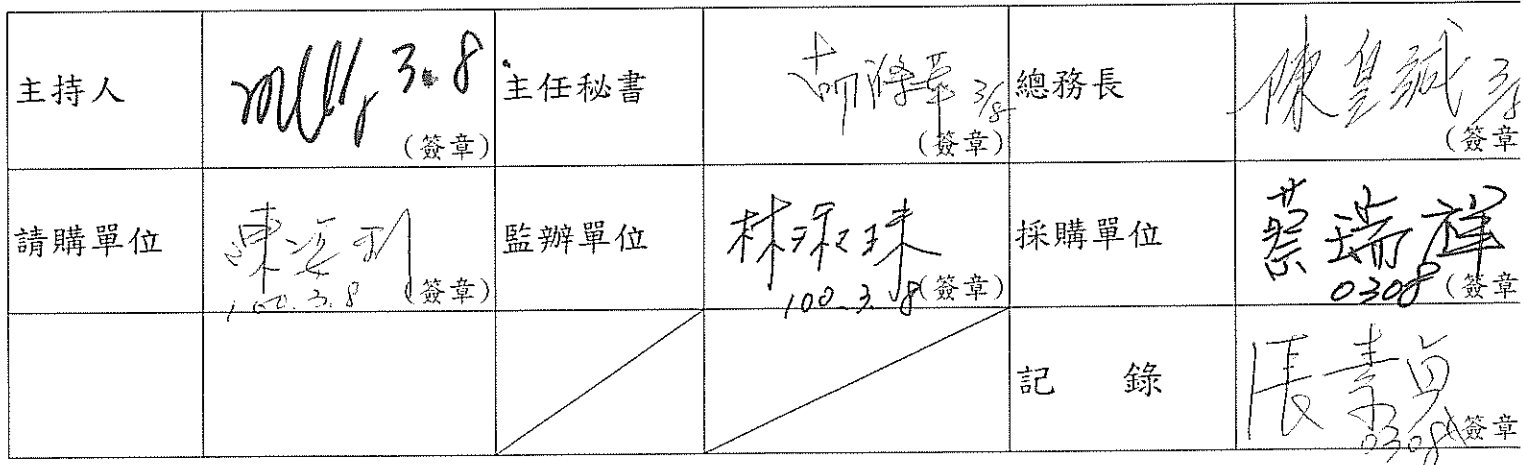 主持人 3.8 (簽章) 主任秘書 3/8 (簽章) 總務長 陳皇誠 3/8 (簽章
請購單位 100.3.8 (簽章) 監辦單位 林珠 100.3.8 (簽章) 採購單位 蔡瑞祥 0308 (簽章
記 錄 張素貞 0308 (簽章